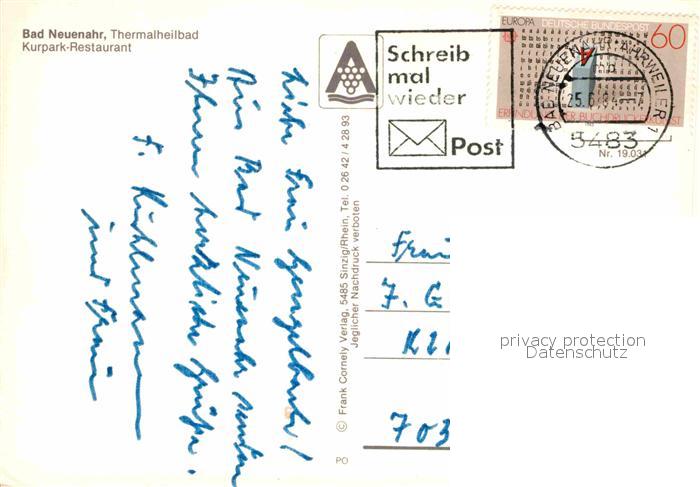 Bad Neuenahr, Thermalheilbad
Kurpark-Restaurant
Liebe Frau
Aus Bad Neuenahr senden
Ihnen herzliche Grüße.
F. Kuhlmann
und Frau
© Frank Cornely Verlag, 5485 Sinzig/Rhein, Tel. 0 26 42 / 4 28 93
Jeglicher Nachdruck verboten
PO
Schreib
mal
wieder
Post
EUROPA DEUTSCHE BUNDESPOST
60
BAD NEUENAHR-AHRWEILER 1
5483
Nr. 19.031
7. G
703
privacy protection
Datenschutz